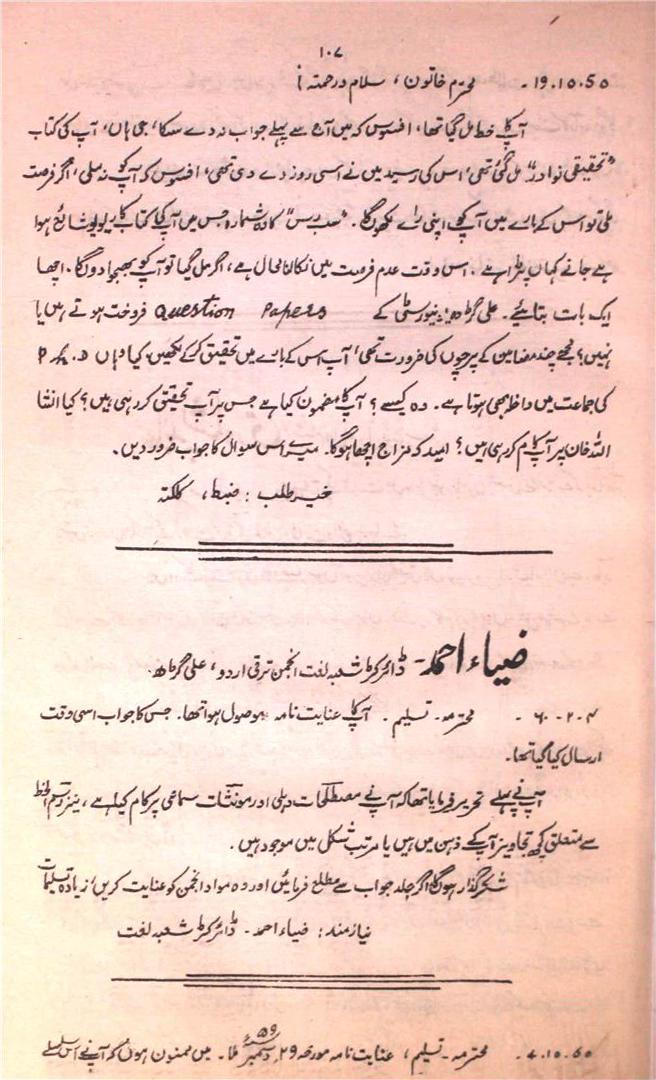 ۱۰۷
19.10.50 - محترم خاتون، سلام ورحمتہ!
آپ کا خط مل گیا تھا، افسوس کہ میں آج سے پہلے جواب نہ دے سکا، جی ہاں، آپ کی کتاب
"تحقیقی نوادر" مل گئی تھی، اس کی رسید میں نے اسی روز دے دی تھی، افسوس کہ آپ کو نہ ملی، اگر فرصت
ملی تو اس کے بارے میں آپ کو اپنی رائے لکھوں گا۔ "سب رس" کا وہ شمارہ جس میں آپ کی کتاب کا ریویو شائع ہوا
ہے جانے کہاں پڑا ہے۔ اس وقت عدم فرصت میں نکالنا محال ہے، اگر مل گیا تو آپ کو بھیجوا دوں گا۔ اچھا
ایک بات بتائیے۔ علی گڑھ یونیورسٹی کے Question Papers فروخت ہوتے ہیں یا
نہیں؟ مجھے چند مضامین کے پرچوں کی ضرورت تھی، آپ اس کے بارے میں تحقیق کر کے لکھیں، کیا وہاں Ph.D
کی جماعت میں داخلہ بھی ہوتا ہے۔ وہ کیسے؟ آپ کا مضمون کیا ہے جس پر آپ تحقیق کر رہی ہیں؟ کیا انشا
اللہ خان پر آپ کام کر رہی ہیں؟ امید کہ مزاج اچھا ہوگا۔ میرے اس سوال کا جواب ضرور دیں۔
خیر طلب: ضبط، کلکتہ
ضیاء احمد - ڈائرکٹر شعبہ لغت انجمن ترقی اردو، علی گڑھ۔
۶۰-۲-۴ - محترمہ - تسلیم۔ آپ کا عنایت نامہ موصول ہوا تھا۔ جس کا جواب اسی وقت
ارسال کیا گیا تھا۔
آپ نے پہلے تحریر فرمایا تھا کہ آپ نے مصطلحات دہلی اور مونثات سماعی پر کام کیا ہے، نیز رسم الخط
سے متعلق کچھ تجاویز آپ کے ذہن میں ہیں یا مرتب شکل میں موجود ہیں۔
شکر گذار ہوں گا اگر جلد جواب سے مطلع فرمائیں اور وہ مواد انجمن کو عنایت کریں، زیادہ تسلیمات
نیاز مند: ضیاء احمد - ڈائرکٹر شعبہ لغت
4.10.60 - محترمہ - تسلیم، عنایت نامہ مورخہ ۲۹ دسمبر ۵۹ء ملا۔ میں ممنون ہوں کہ آپ نے اس سلسلے